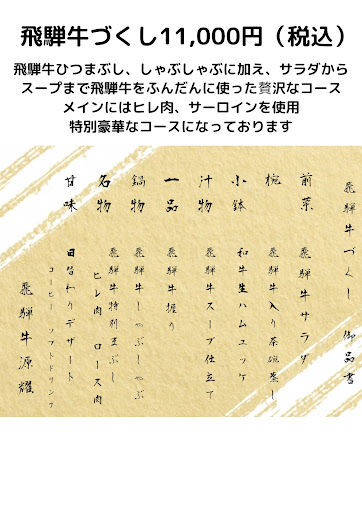 飛騨牛づくし11,000円（税込）
飛騨牛ひつまぶし、しゃぶしゃぶに加え、サラダから
スープまで飛騨牛をふんだんに使った贅沢なコース
メインにはヒレ肉、サーロインを使用
特別豪華なコースになっております
飛騨牛づくし 御品書
前菜 飛騨牛サラダ
椀 飛騨牛入り茶碗蒸し
小鉢 和牛生ハムユッケ
汁物 飛騨牛スープ仕立て
一品 飛騨牛握り
鍋物 飛騨牛しゃぶしゃぶ
名物 飛騨牛特別まぶし
ヒレ肉 ロース肉
甘味 日替わりデザート
コーヒー ソフトドリンク
飛騨牛源耀